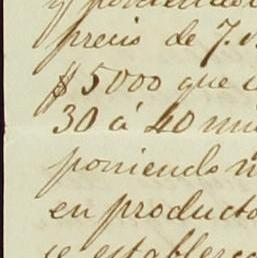 y poniendo
precio de 7.
$5000 que
30 á 40 mil
poniendo
en producto
se establezca